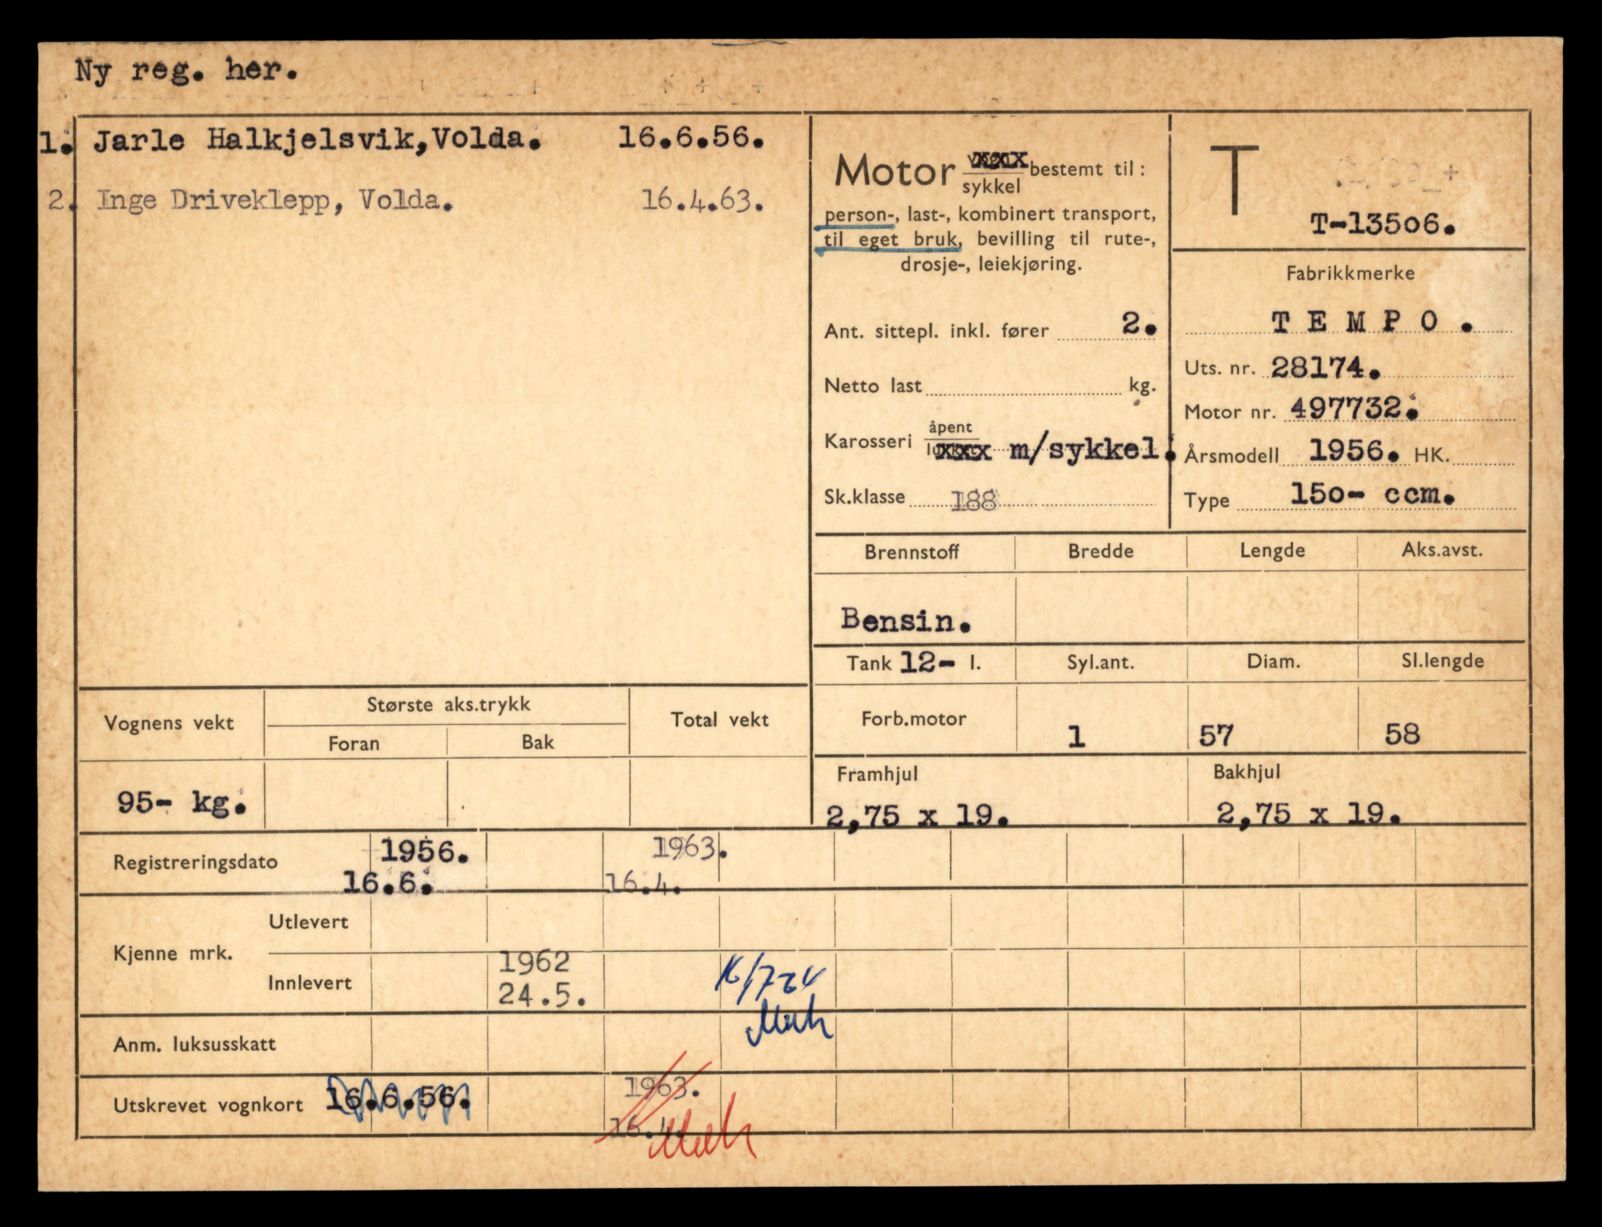 Ny reg. her.
1. Jarle Halkjelsvik, Volda. 16.6.56.
2. Inge Driveklepp, Volda. 16.4.63.
Motor xxx
sykkel bestemt til:
person-, last-, kombinert transport,
til eget bruk, bevilling til rute-,
drosje-, leiekjøring.
Ant. sittepl. inkl. fører 2.
Netto last kg.
Karosseri åpent
xxx m/sykkel.
Sk.klasse 188
T
T-13506.
Fabrikkmerke
TEMPO.
Uts. nr. 28174.
Motor nr. 497732.
Årsmodell 1956. HK.
Type 150- ccm.
Brennstoff Bredde Lengde Aks.avst.
Bensin.
Tank 12- l. Syl.ant. Diam. Sl.lengde
Forb.motor 1 57 58
Framhjul Bakhjul
2,75 x 19. 2,75 x 19.
Vognens vekt Største aks.trykk Total vekt
Foran Bak
95- kg.
Registreringsdato 1956. 1963.
16.6. 16.4.
Kjenne mrk. Utlevert
Innlevert 1962
24.5.
Anm. luksusskatt
Utskrevet vognkort 16.6.56. 1963.
16.4.